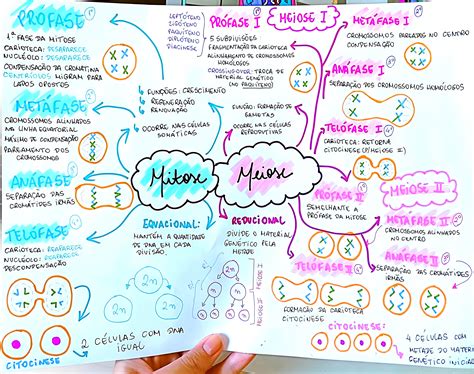 PRÓFASE
1ª FASE DA MITOSE
CARIOTECA: DESAPARECE
NUCLÉOLO: DESAPARECE
CONDENSAÇÃO DA CROMATINA
CENTRÍOLOS MIGRAM PARA
LADOS OPOSTOS
METÁFASE
CROMOSSOMOS ALINHADOS
NA LINHA EQUATORIAL
MÁXIMO DE CONDENSAÇÃO
PAREAMENTO DOS
CROMOSSOMOS
ANÁFASE
SEPARAÇÃO DAS
CROMÁTIDES IRMÃS
TELÓFASE
CARIOTECA: REAPARECE
NUCLÉOLO: REAPARECE
DESCONDENSAÇÃO
CITOCINESE
2 CÉLULAS COM DNA
IGUAL
FUNÇÕES: CRESCIMENTO
REGENERAÇÃO
RENOVAÇÃO
OCORRE NAS CÉLULAS
SOMÁTICAS
Mitose
EQUACIONAL:
MANTÉM A QUANTIDADE
DE DNA EM CADA
DIVISÃO.
2n
2n
2n
LEPTÓTENO
ZIGÓTENO
PAQUÍTENO
DIPLÓTENO
DIACINESE
PRÓFASE I
MEIOSE I
5 SUBDIVISÕES
FRAGMENTAÇÃO DA CARIOTECA
PAREAMENTO DE CROMOSSOMOS
HOMÓLOGOS
CROSSING-OVER: TROCA DE
MATERIAL GENÉTICO
(NO PAQUÍTENO)
FUNÇÃO: FORMAÇÃO DE
GAMETAS
OCORRE NAS CÉLULAS
REPRODUTIVAS
Meiose
REDUCIONAL:
DIVIDE O MATERIAL
GENÉTICO PELA
METADE
2n
n
n
n
n
n
n
MEIOSE I
MEIOSE II
METÁFASE I
CROMOSSOMOS PAREADOS NO CENTRO
CONDENSAÇÃO
ANÁFASE I
SEPARAÇÃO DOS CROMOSSOMOS HOMÓLOGOS
TELÓFASE I
CARIOTECA: RETORNA
CITOCINESE (P/ MEIOSE II)
PRÓFASE II
SEMELHANTE A
PRÓFASE DA MITOSE
MEIOSE II
METÁFASE II
CROMOSSOMOS ALINHADOS
NO CENTRO
ANÁFASE II
SEPARAÇÃO DAS CROMÁTIDES
IRMÃS
TELÓFASE II
FORMAÇÃO DA CARIOTECA
CITOCINESE
CITOCINESE:
4 CÉLULAS COM
METADE DO MATERIAL
GENÉTICO INICIAL